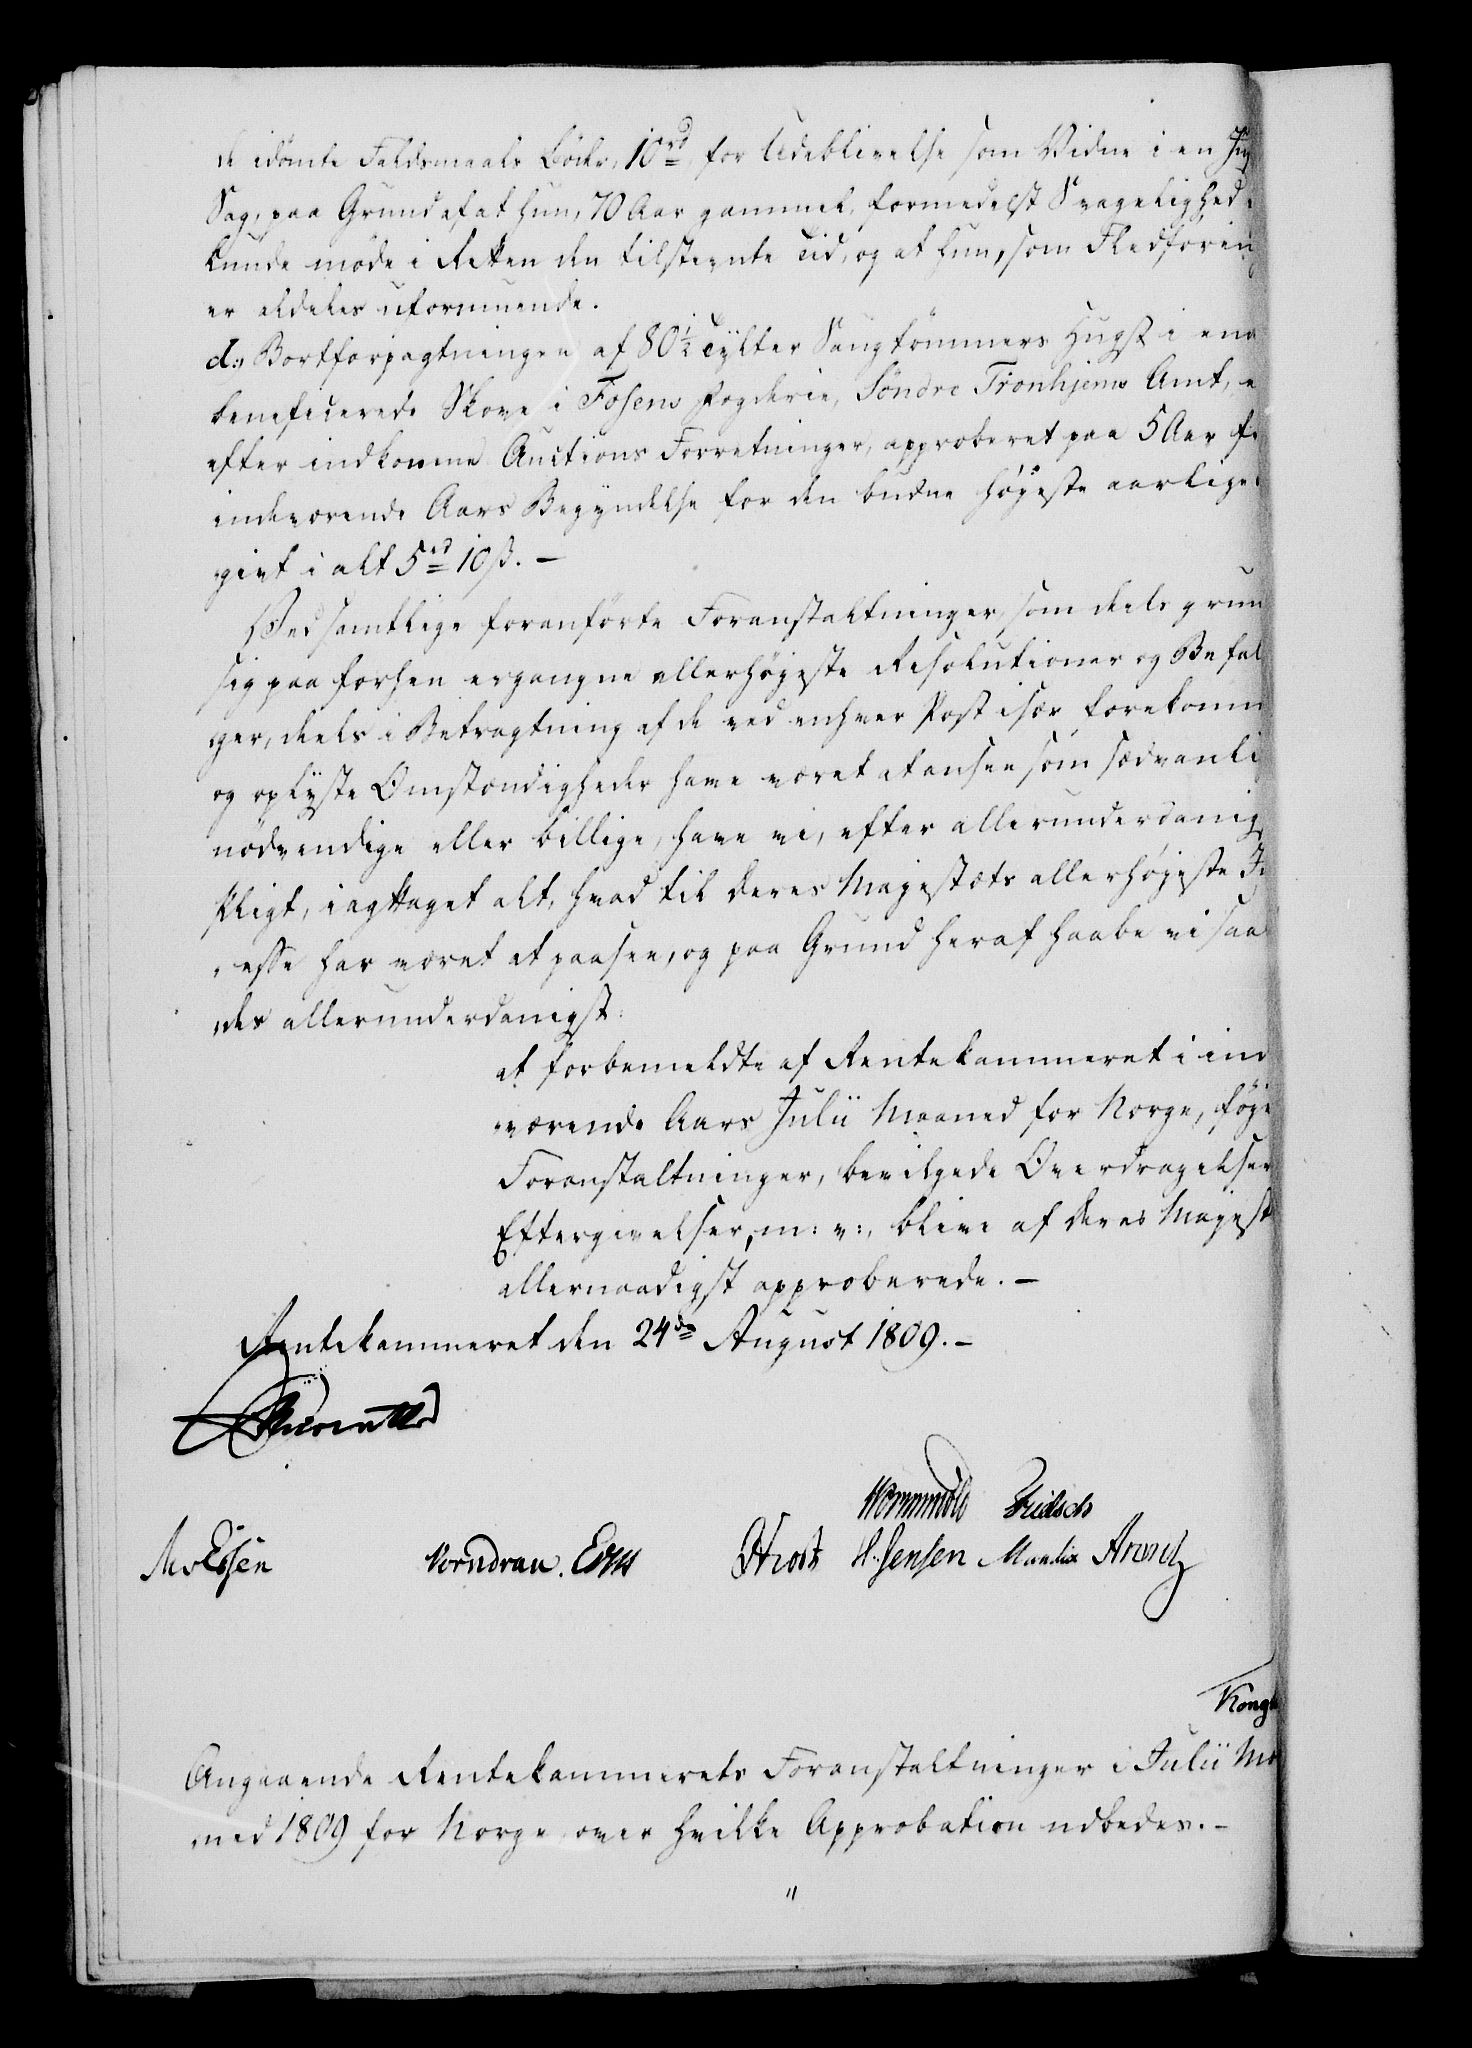 de idömte Faldsmaals Böder, 10 rd, for Udeblivelse som Vidne i en
Sag, paa Grund af at hun, 70 Aar gammel, formedelst Svagelighed
kunde möde i Retten den tilstevnte Tid, og at hun, som Fledföring
er aldeles uformuende.
d., Bortforpagtningen af 80½ Tylter Saugtömmers Hugst i
beneficerede Skove i Fosens Fogderie, Söndre Tronhjems Amt, e
efter indkomne Auctions Forretninger, approberet paa 5 Aar fr
indeværende Aars Begyndelse for den budne höyeste aarlige
givt i alt 5 rd 10 ß. —
Ved samtlige foranförte Foranstaltninger, som deels grun
sig paa forhen ergangne allerhöyeste Resolutioner og Befal
ger, deels i Betragtning af de ved enhver Post især forekomm
og oplyste Omstændigheder have været at ansee som sædvanli
nödvendige eller billige, have vi, efter allerunderdanig
Pligt, iagttaget alt, hvad til Deres Majestæts allerhöjeste I
esse har været at paasee, og paa Grund heraf haabe vi saa
des allerunderdanigst:
at forbemeldte af Rentekammeret i ind
værende Aars Julii Maaned for Norge, föje
Foranstaltninger, bevilgede Overdragelser
Eftergivelser, m: v:, blive af Deres Majest
allernaadigst approberede. —
Rentekammeret den 24de August 1809. —
Wormskiold Fridsch
Essen Vorndran. Hrost H. Jensen Mandix Arentz
Kongl
Angaaende Rentekammerets Foranstaltninger i Julii Ma
ned 1809 for Norge, over hvilke Approbation udbedes. —
"